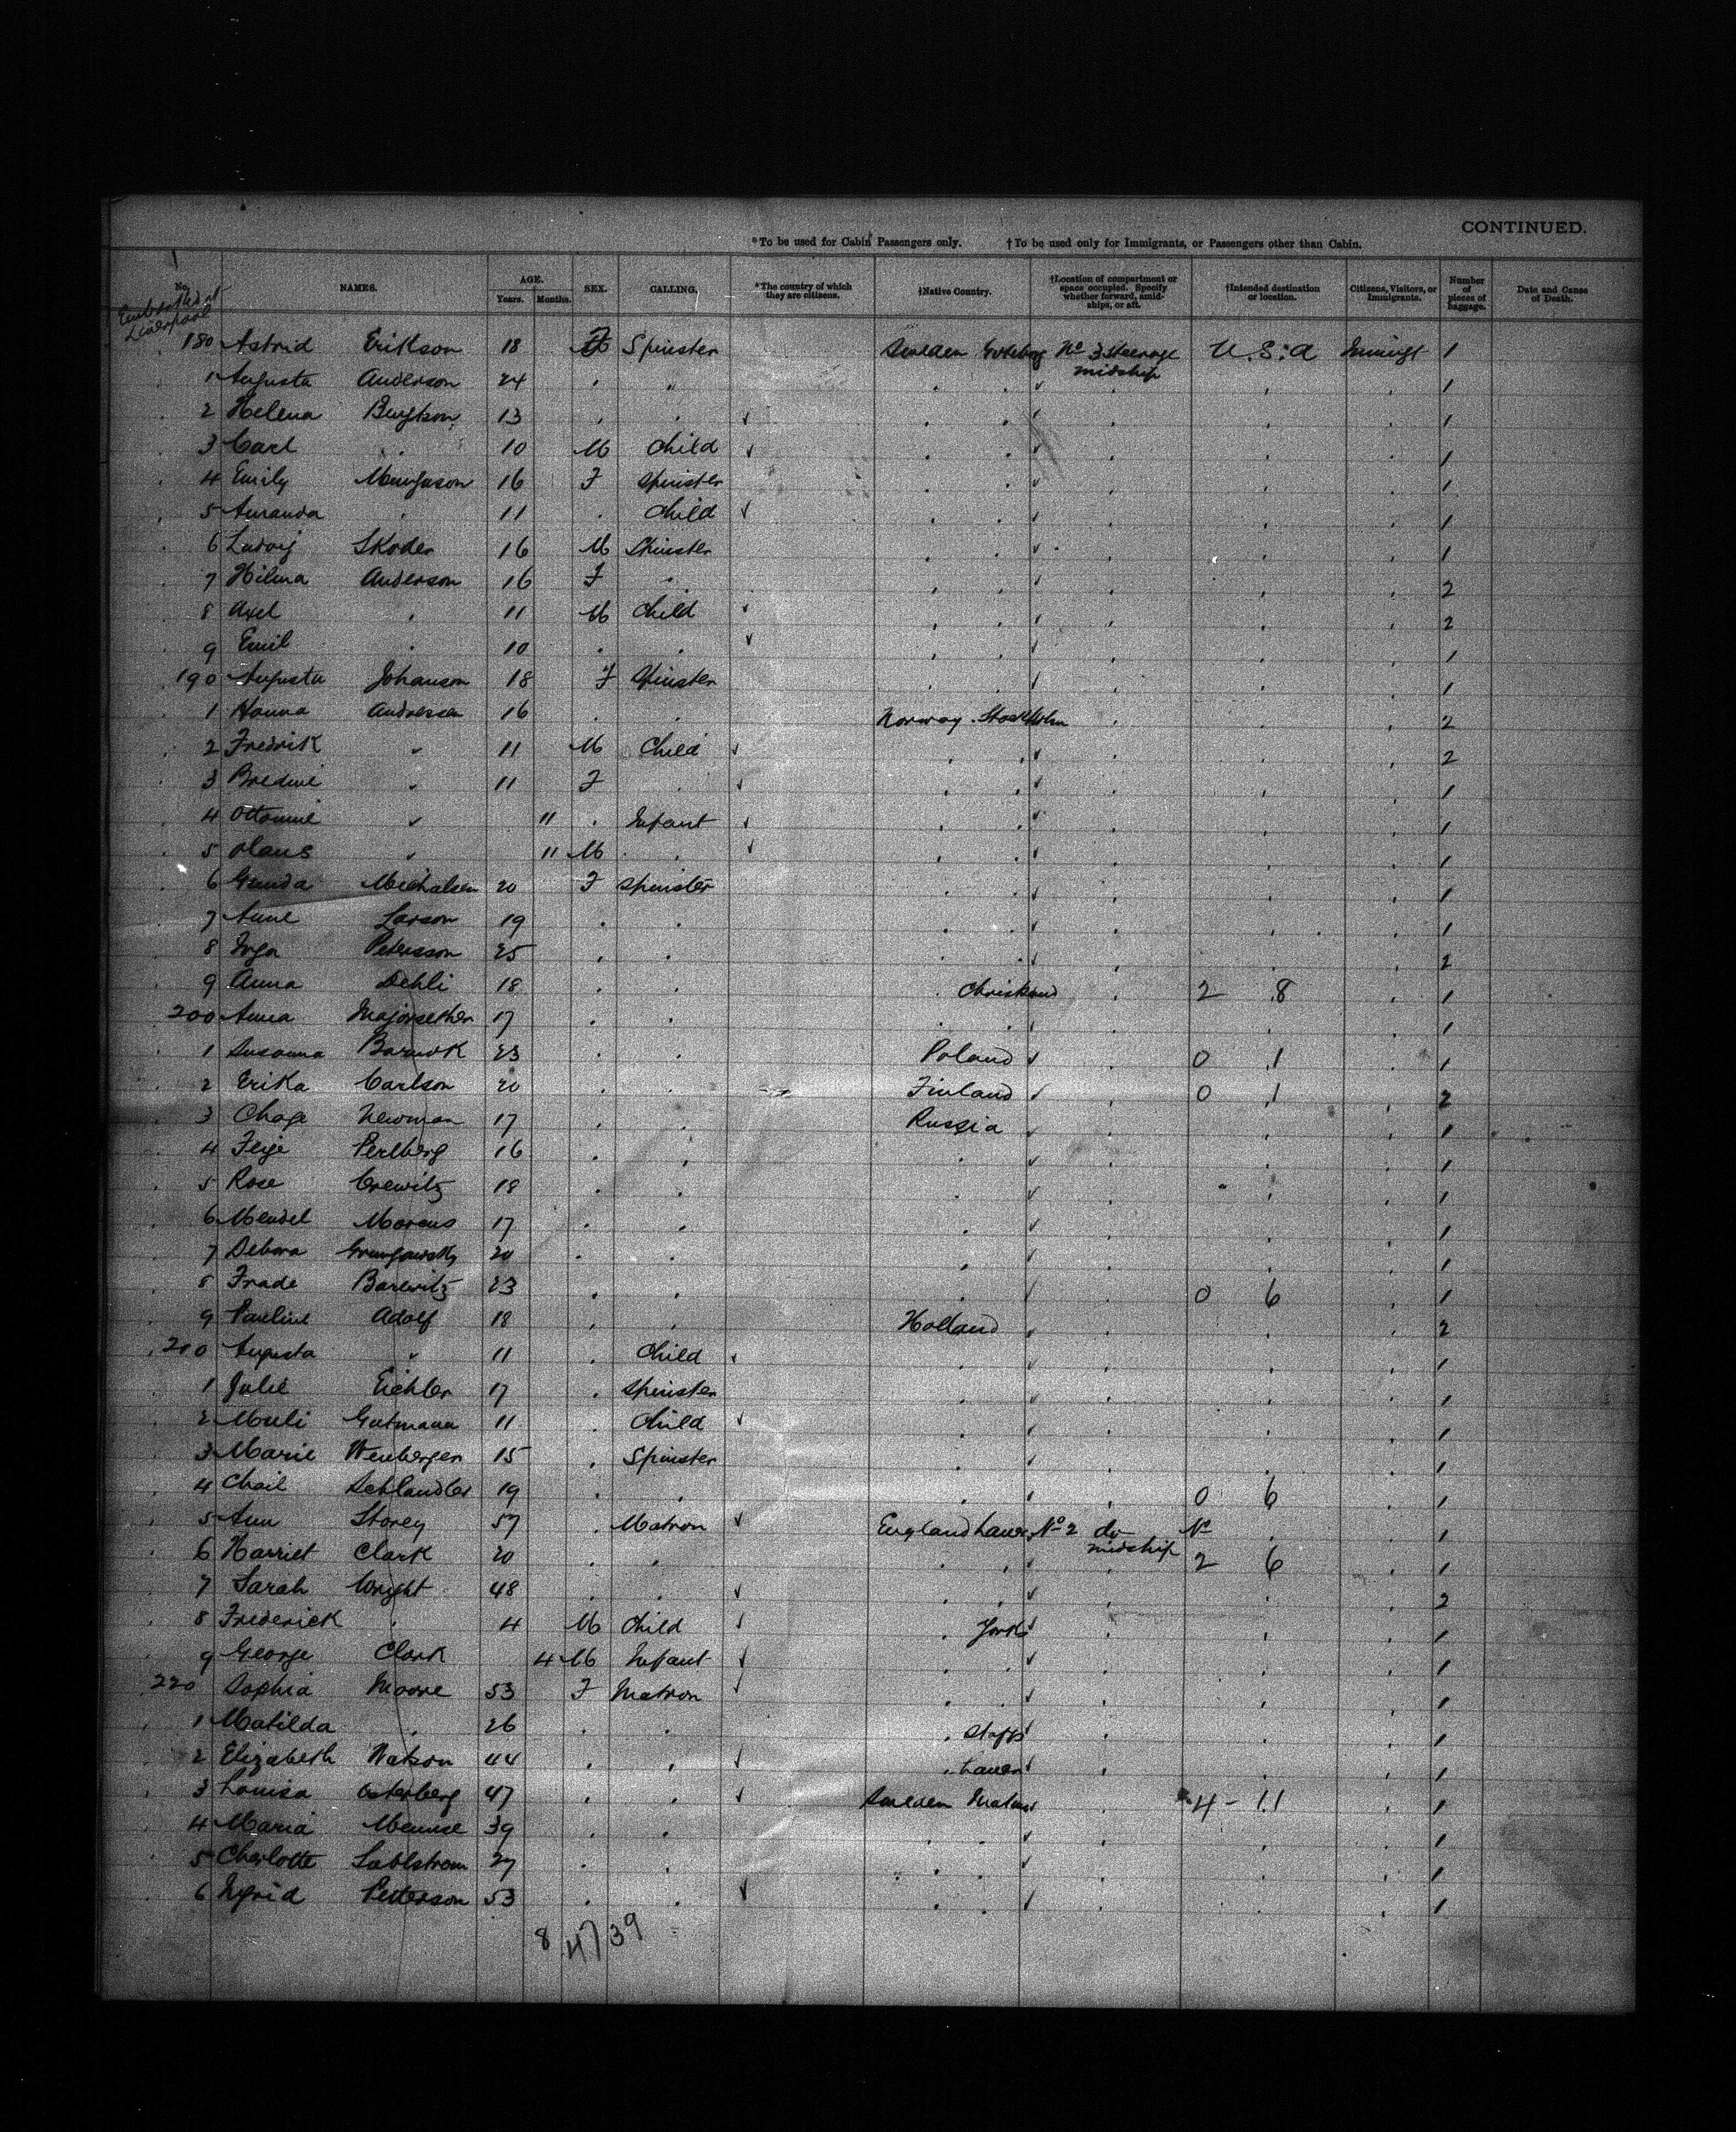 CONTINUED.
*To be used for Cabin Passengers only. †To be used only for Immigrants, or Passengers other than Cabin.
No. NAMES. AGE. Years. Months. SEX. CALLING. *The country of which they are citizens. †Native Country. †Location of compartment or space occupied. Specify whether forward, amidships, or aft. †Intended destination or location. Citizens, Visitors, or Immigrants. Number of pieces of baggage. Date and Cause of Death.
Embarked at
Liverpool
180 Astrid Erikson 18 F Spinster Sweden Goteborg No 3 Steerage midship U.S.A 1
1 Augusta Anderson 24 " 1
2 Helena 13 1
3 Carl 10 M Child 1
4 Emily 16 F Spinster 1
5 Amanda 11 Child 1
6 Ludvig Skoder 16 M Spinster 1
7 Hilma Anderson 16 F 2
8 Axel 11 M Child 2
9 Emil 10 1
190 Augusta Johanson 18 F Spinster 1
1 Hanna Andresen 16 Norway Stockholm 2
2 Fredrik " 11 M Child 2
3 " 11 F 1
4 " 11 Infant 1
5 Olaus " 11 M 1
6 Gunda Michalsen 20 F Spinster 1
7 Anne Larson 19 1
8 Inga Petersson 25 2
9 Anna Dehli 18 2 8 1
200 Anna 17 1
1 Susanna 23 Poland 0 1 1
2 Erika Carlson 20 Finland 0 1 2
3 Newman 17 Russia 1
4 Feige Perlberg 16 1
5 Rose 18 1
6 Mendel Marcus 17 1
7 Debora 20 1
8 Frade Barewitz 23 0 6 1
9 Pauline Adolf 18 Holland 2
210 Augusta " 11 Child 1
1 Julie Eichler 17 Spinster 1
2 Gutmann 11 Child 1
3 Marie 15 Spinster 1
4 19 0 6 1
5 Ann Storey 57 Matron England No 2 do midship No 1
6 Harriet Clark 20 2 6 1
7 Sarah Wright 48 2
8 Frederick 4 M Child York 1
9 George Clark 4 M Infant 1
220 Sophia Moore 53 F Matron 1
1 Matilda 26 Staffs 1
2 Elizabeth Watson 44 1
3 Louisa Osterberg 47 Sweden 4 - 11 1
4 Maria 39 1
5 Charlotte Sahlstrom 27 1
6 Ingrid Petterson 53 1
8 47 39